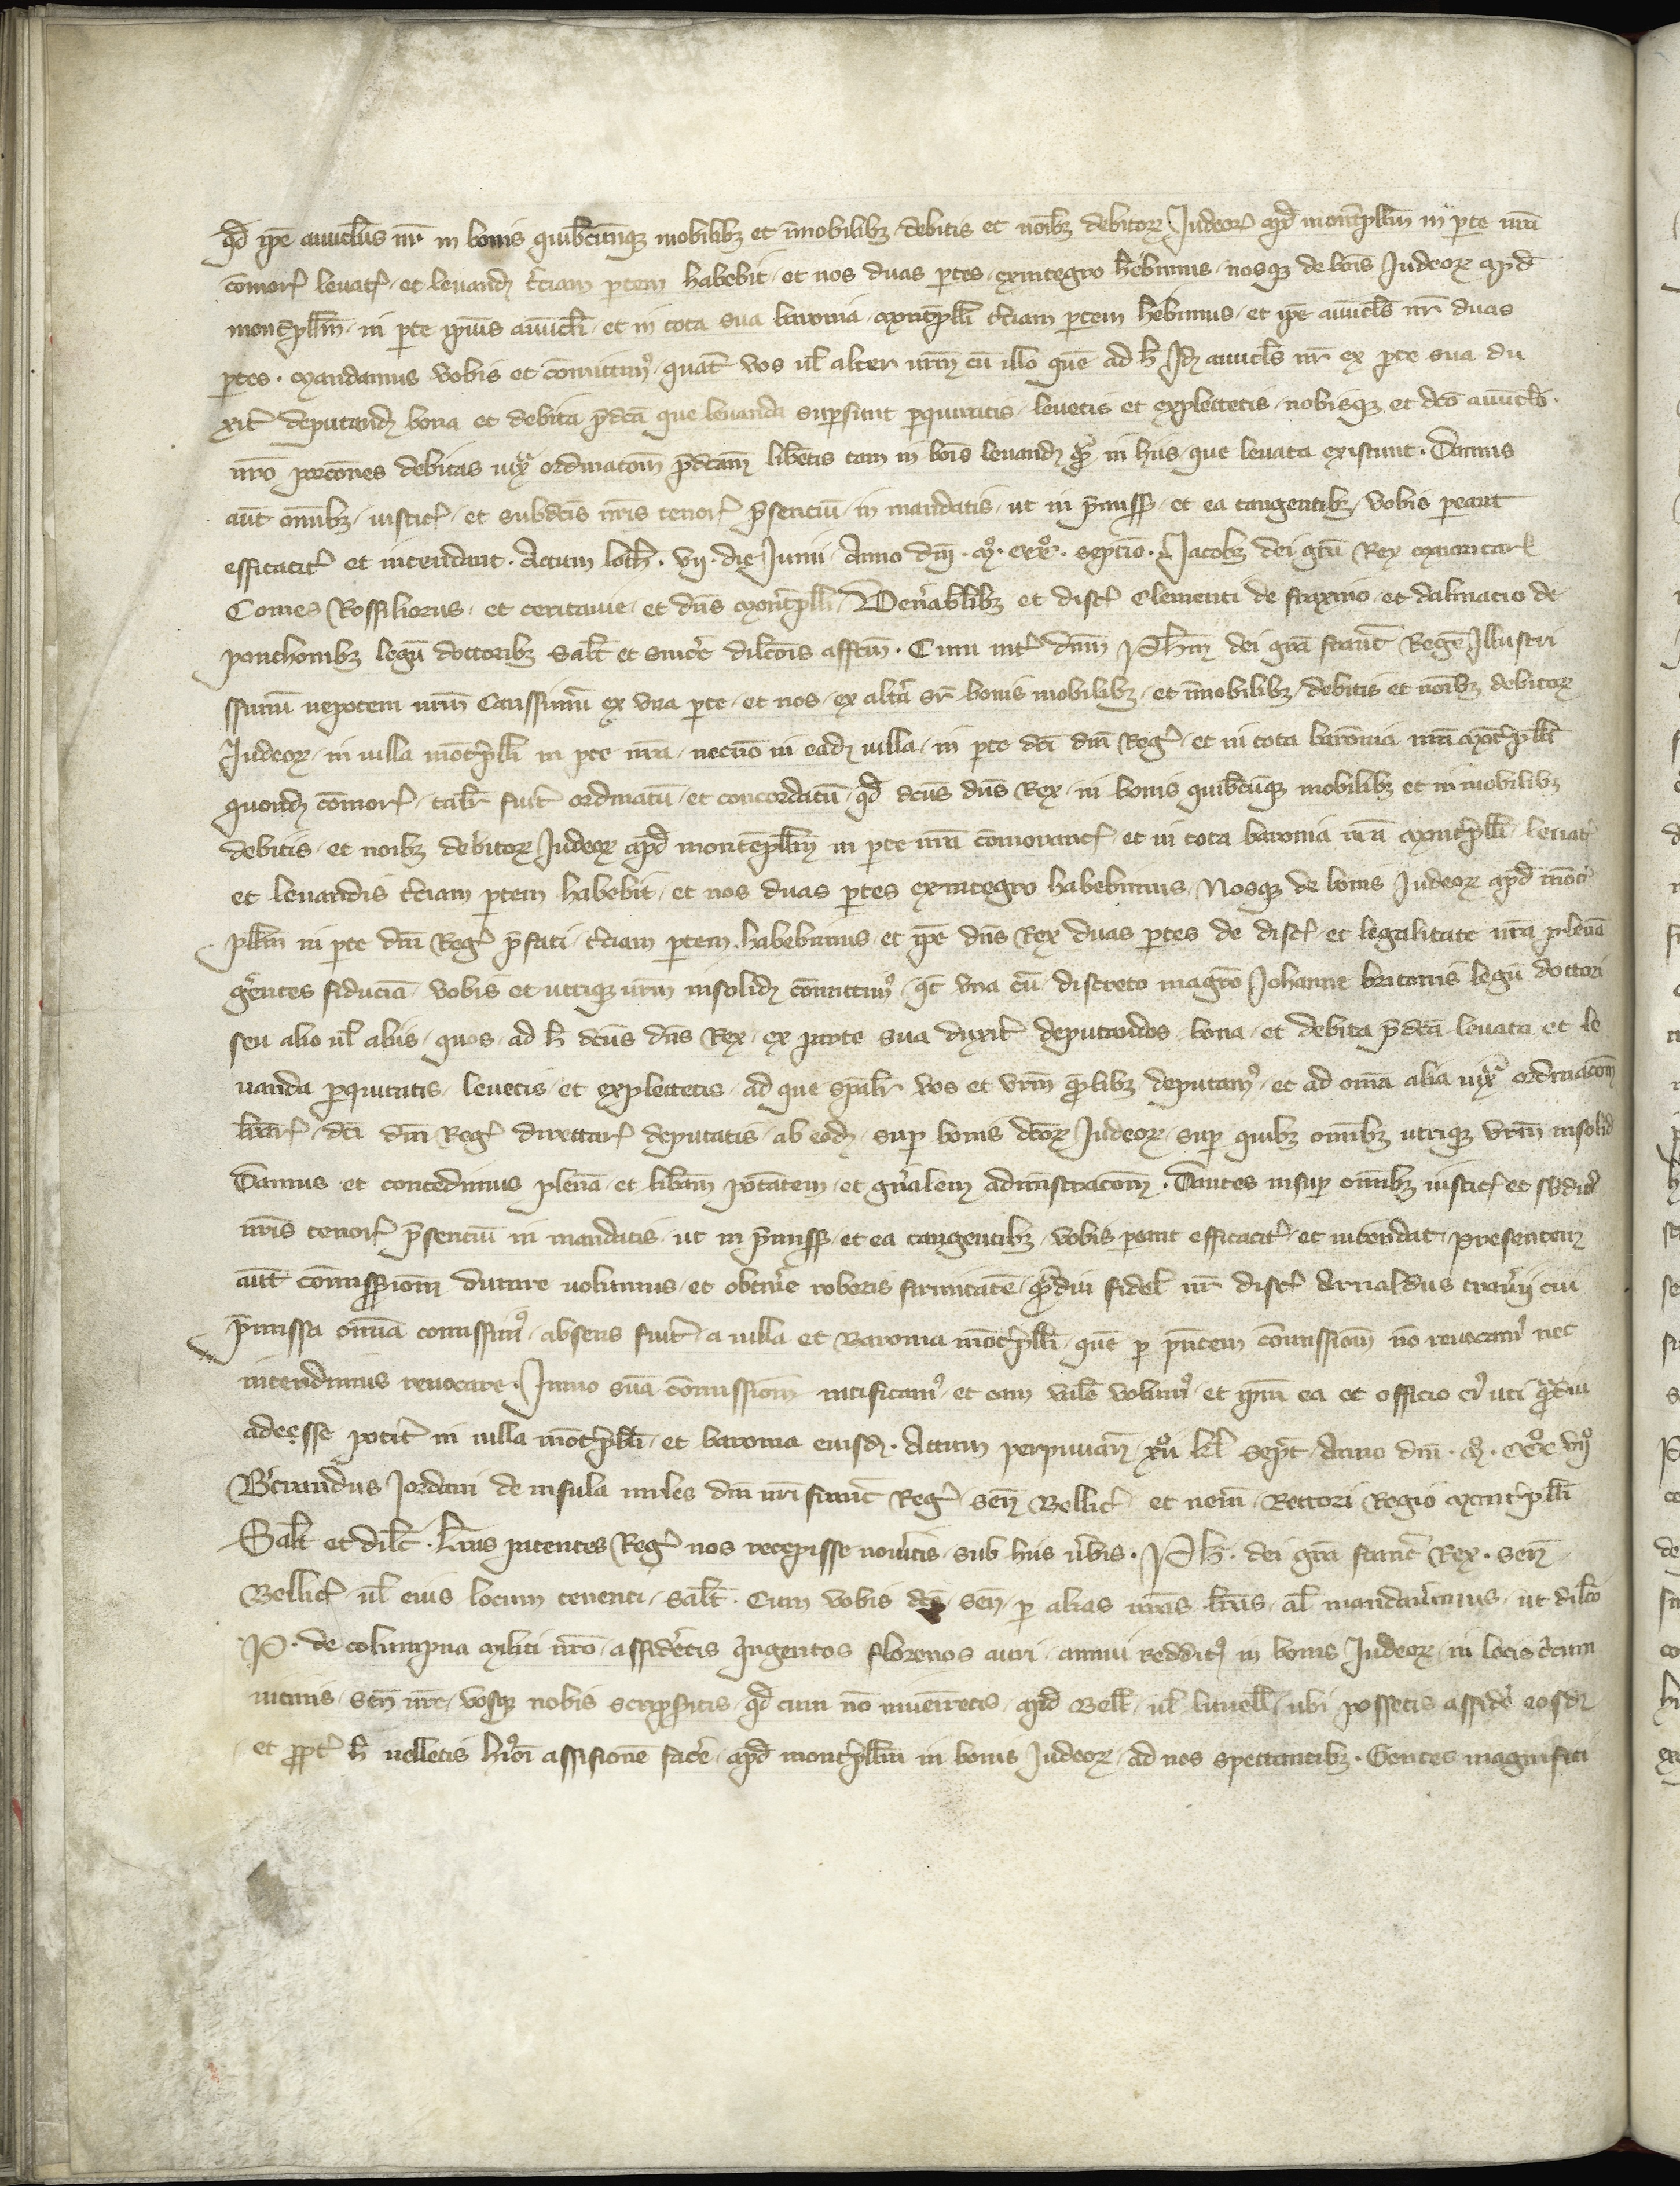 qd ip̄e auūclus nr̄ in bonis quibc̄unqꝫ mobilibꝫ et īmobilibꝫ debitis et noībꝫ debitoꝝ Judeoꝝ apd̄ montēpllm̄ in p̱te nr̄a
cōmor̄ leuat̄ et leuand̄ t̄ciam p̱tem habebit et nos duas p̱tes exintegro hēbimus nosqꝫ de boīs Judeoꝝ apd̄
montēpllm̄ in p̱te ipīus auūcli et in tota sua baronia montisp̄lli t̄ciam p̱tem hēbimus et ip̄e auūcls nr̄ duas
p̱tes. mandamus vobis et cōmittimꝰ quat̄ vos ul̄ alter ur̄m cū illo quē ad h̄ Idꝫ auūcls nr̄ ex p̱te sua du
xit̄ deputandꝫ bona et debita p̄dc̄a que leuanda sup̱sunt p̱quiratis leuetis et explectetis nobisqꝫ et dc̄o auūclo
nr̄o porcōnes debitas iuxᵃ ordinacōm̄ p̄dcām lib̄etis tam in boīs leuandꝫ qᵃm in hiis que leuata existunt. Damus
aut̄ om̄ibꝫ iustic̄ et subdc̄is nr̄is tenor̄ p̄senciū in mandatis ut in p̄miss̄ et ea tangentibꝫ vobis pareant
efficacit̄ et intendant. Actum loch̄. vij. die Junii Anno dn̄i. mº. cccº. septīo. Jacobꝫ dei grā Rex maioricar̄
Comes Rossilionis et ceritanie et dn̄s montisp̄lli Ven̄abilibꝫ et disc̄ Clementi de fraxino et dalmacio de
ponchonibꝫ legū doctoribꝫ Salt̄ et sinc̄e dilc̄ois affc̄m. Cum int̄ dn̄m Ph̄m dei grā franc̄ Regē Illustri
ssimū nepotem nr̄m Carissimū ex vna p̱te et nos ex alt̄a sr̄ bonis mobilibꝫ et īmobilibꝫ debitis et noībꝫ debitoꝝ
Judeoꝝ in villa mōtisp̄lli in p̱te nr̄a necnō in eadꝫ villa in p̱te dc̄i dn̄i Reḡ et in tota baronia nr̄a mōtisp̄lli
quondꝫ cōmor̄ talr̄ fuit̄ ordinatū et concordatū qd̄ dc̄us dn̄s Rex in bonis quibc̄ūqꝫ mobilibꝫ et inmobilibꝫ
debitis et noībꝫ debitoꝝ Judeoꝝ apd̄ montēpllm̄ in p̱te nr̄a cōmoranc̄ et in tota baronia nr̄a montisp̄lli leuat̄
et leuandis t̄ciam p̱tem habebit et nos duas p̱tes exintegro habebimus Nosqꝫ de bonis Judeoꝝ apd̄ mōtē
pllm̄ in p̱te dn̄i Reḡ p̄fati t̄ciam p̱tem habebimus et ip̄e dn̄s Rex duas p̱tes de disc̄ et legalitate ur̄a plenā
gērentes fiduciā vobis et utriqꝫ ur̄m insolidꝫ cōmittimꝰ qt̄ vna cū discreto magr̄o Johanne britonis legū doctori
seu alio ul̄ aliis quos ad h̄ dc̄us dn̄s Rex ex parte sua duxit̄ deputandos bona et debita p̄dc̄a leuata et le
uanda p̱quiratis leuetis et explectetis ad que spālr̄ vos et vr̄m qᵃmlibꝫ deputamꝰ et ad om̄a alia iuxᵃ ordinacōm̄
litt̄ar̄ dc̄i dn̄i Reḡ directar̄ deputatis ab eodꝫ sup̱ bonis dc̄oꝝ Judeoꝝ sup̱ quibꝫ om̄ibꝫ utriqꝫ vr̄m insolid̄
Damus et concedimus plenā et lib̄am pōtatem et gn̄alem adm̄istracōm̄. Dantes insup̱ om̄ibꝫ iustic̄ et sbdit̄
nr̄is tenor̄ p̄senciū in mandatis ut in p̄miss̄ et ea tangentibꝫ vobis peant efficacit̄ et intendāt presentem
aut̄ cōmissiom̄ durare volumus et obtin̄e roboris firmitatē qᵃmdiu fidel̄ nr̄ disc̄ Arnaldus trau̾ij cui
p̄missa om̄ia cōmisimꝰ absens fuit̄ a villa et Baronia mōtisp̄lli quē p̱ p̄ntem cōmissiom̄ nō reuocamꝰ nec
intendimus reuocare. Immo suā cōmissiom̄ ratificamꝰ et eam valē volumꝰ et ipm̄ ea et officio eiꝰ uti qᵃmdiu
adeesse potit̄ in villa mōtisp̄lli et baronia eiusdꝫ. Actum perpiniani xvº kl̄ sept̄ Anno dn̄i. mº. cccº vijº
B̄trandus Jordani de insula miles dn̄i nr̄i franc̄ Reḡ Sen̄ Bellic̄ et nem̄ Rectori Regio montisp̄lli
Salt̄ et dilc̄. Litt̄as patentes Reḡ nos recepisse noūitis sub hiis ūbis. Ph̄. dei grā franc̄ Rex. Sen̄
Bellic̄ ul̄ eius locum tenenti Salt̄. Cum vobis dc̄o sen̄ p̱ alias nr̄as litt̄as al̄ mandaūimus ut dilc̄o
P. de columpna militi nr̄o assid̄etis quigentos florenos auri annui reddit̄ in bonis Judeoꝝ in locis c̄cum
uicinis sen̄ ur̄e vosqꝫ nobis scripsitis qd̄ cum nō inueniretis apd̄ Bell̄ ul̄ lunell̄ ubi possetis assid̄e eosdꝫ
et ppt̄ h̄ velletis hᵒi assisionē fac̄e apd̄ montēpllm̄ in bonis Judeoꝝ ad nos spectantibꝫ. Gentes magnifici